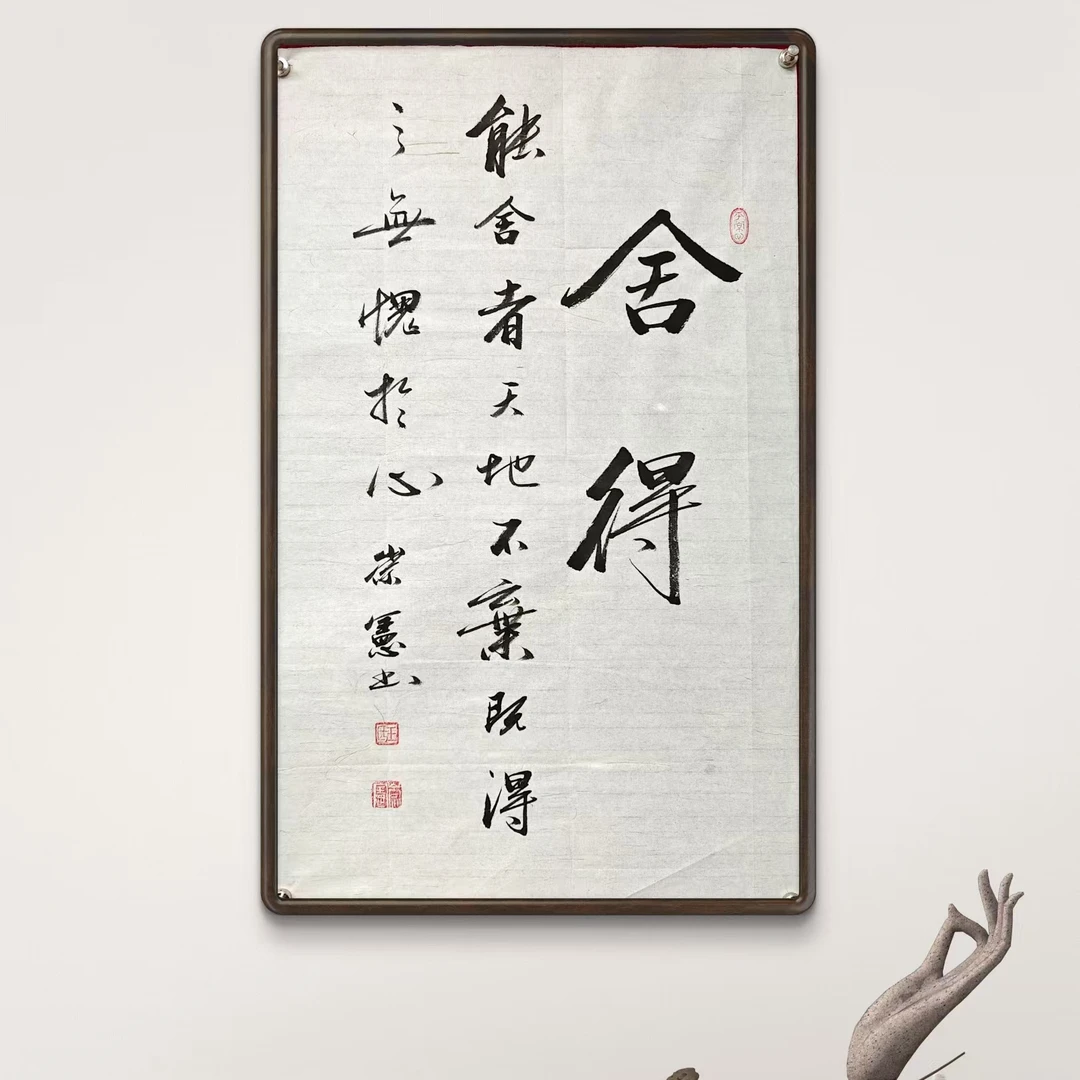 舍得
能舍者天地不棄既得
之無愧於心 崇憲书